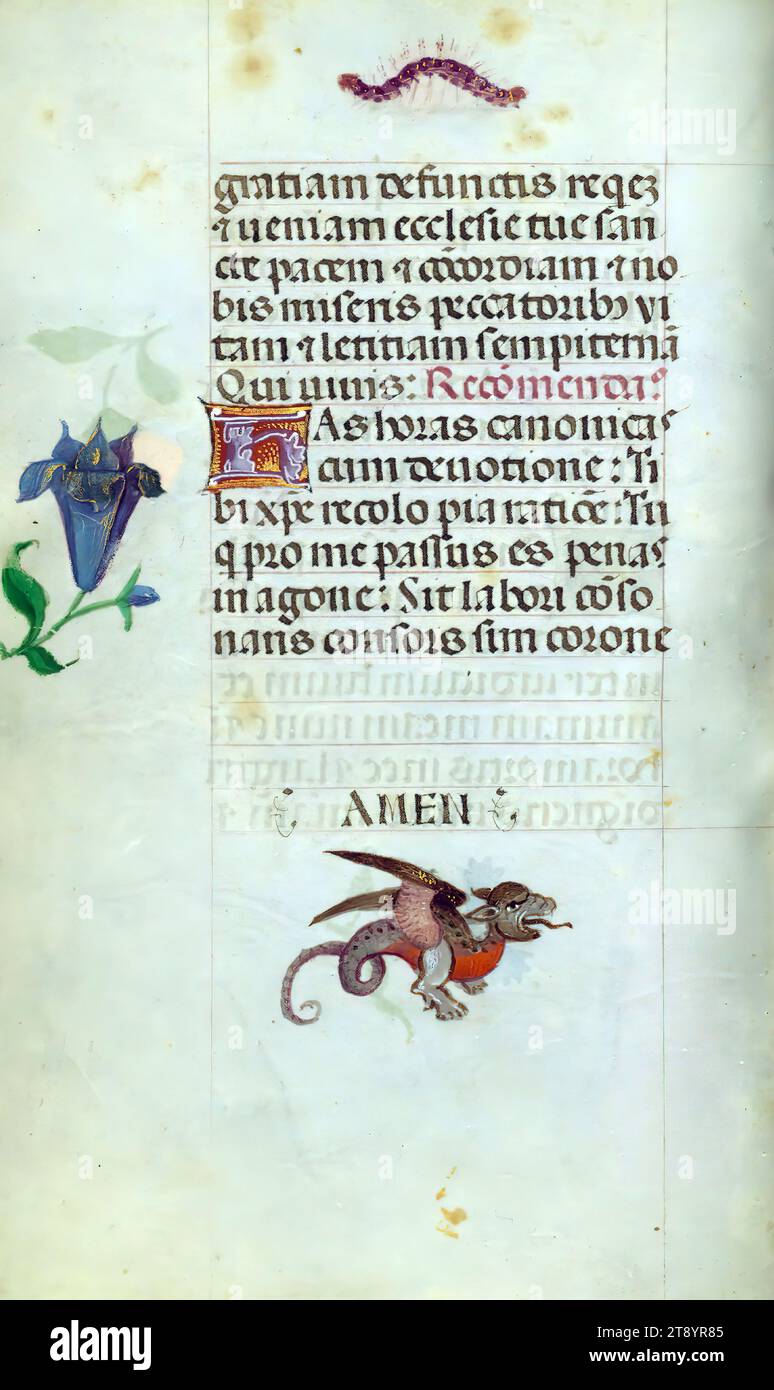 gratiam defunctis reqez
⁊ ueniam ecclesie tue san
cte pacem ⁊ cōcordiam ⁊ no
bis miseris peccatoribꝰ vi
tam ⁊ letitiam sempiternā
Qui uiuis: Recōmendaˢ
HAs horas canonicaˢ
cum deuotione: Ti
bi xp̄e recolo pia ratiōe: Tu
q pro me passus es penaˢ
in agone: Sit labori cōso
nans consors sim corone
AMEN
alamy
a
alamy
Image ID: 2T8YR85
www.alamy.com